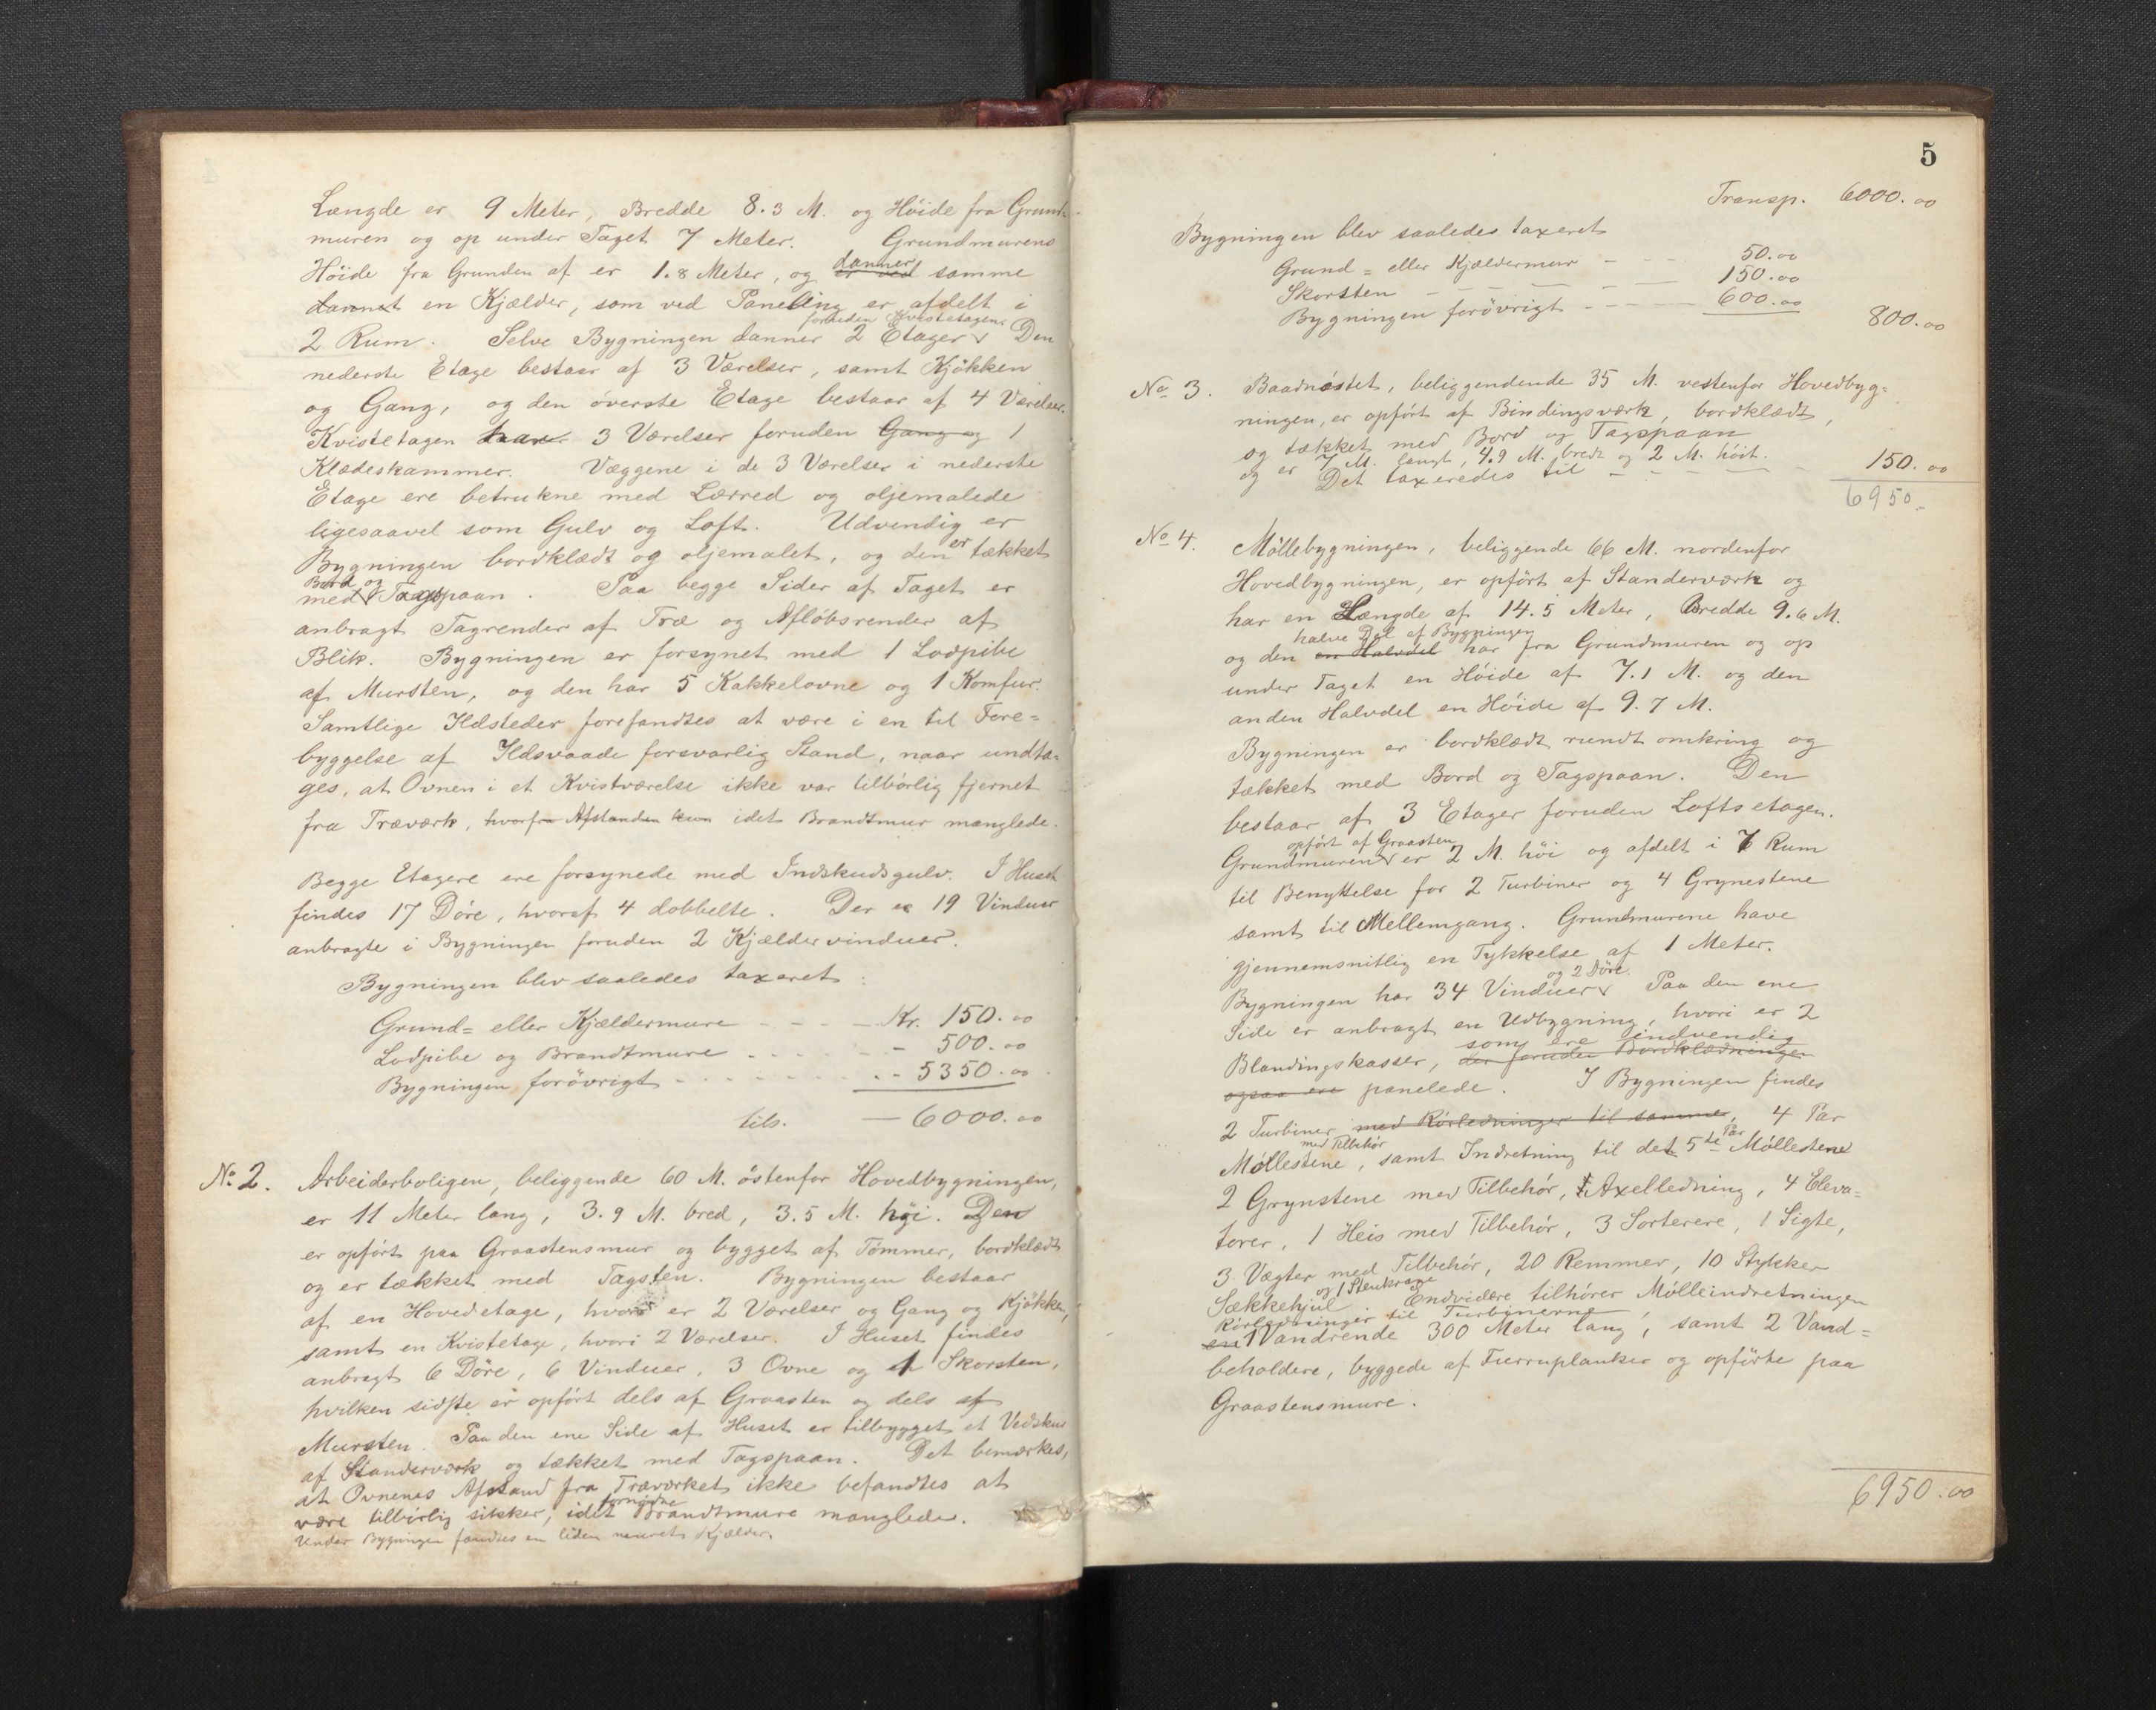 Længde er 9 Meter, Bredde 8.3 M. og Höide fra Grund-
muren og op under Taget 7 Meter. Grundmurens
danner
Höide fra Grunden af er 1.8 Meter, og er ved samme
dannet en Kjælder, som ved Paneling er afdelt i
foruden Kvistetagen.
2 Rum. Selve Bygningen danner 2 Etager Den
nederste Etage bestaar af 3 Værelser, samt Kjökken
og Gang, og den överste Etage bestaar af 4 Værelser.
Kvistetagen har 3 Værelser foruden Gang og 1
Klædeskammer. Væggene i de 3 Værelser i nederste
Etage ere betrukne med Lærred og oljemalede
ligesaavel som Gulv og Loft. Udvendig er
Bygningen bordklædt og oljemalet, og den er tækket
Bord og
med Tagspaan. Paa begge Sider af Taget er
anbragt Tagrender af Træ og Aflöbsrender af
Blik. Bygningen er forsynet med 1 Lodpibe
af Mursten, og den har 5 Kakkelovne og 1 Komfur.
Samtlige Ildsteder forefandtes at være i en til Fore=
byggelse af Ildsvaade forsvarlig Stand, naar undta-
ges, at Ovnen i et Kvistværelse ikke var tilbörlig fjernet
fra Træværk, hvorfra Afstanden kun idet Brandtmur manglede.
Begge Etagere ere forsynede med Indskudsgulv. I Huset
findes 17 Döre, hvoraf 4 dobbelte. Der er 19 Vinduer
anbragte i Bygningen foruden 2 Kjældervinduer.
Bygningen blev saaledes taxeret:
Grund= eller Kjældermure - - - Kr. 150.00
Lodpibe og Brandtmure - - - - 500.00
Bygningen forövrigt - - - - 5350.00
tils. - 6000.00
No 2. Arbeiderboligen, beliggende 60 M. östenfor Hovedbygningen,
er 11 Meter lang, 3.9 M. bred, 3.5 M. höi. Den
er opfört paa Graastensmur og bygget af Tömmer, bordklædt
og er tækket med Tagsten. Bygningen bestaar
af en Hovedetage, hvori er 2 Værelser og Gang og Kjökken,
samt en Kvistetage, hvori 2 Værelser. I Huset findes
anbragt 6 Döre, 6 Vinduer, 3 Ovne og 1 Skorsten,
hvilken sidste er opfört dels af Graasten og dels af
Mursten. Paa den ene Side af Huset er tilbygget et Vedskur
af Standerværk og tækket med Tagspaan. Det bemærkes,
at Ovnenes Afstand fra Træværket ikke befandtes at
fornödne
være tilbörlig sikker, idet Brandtmure manglede.
Under Bygningen fandtes en liden muret Kjælder.
5
Transp. 6000.00
Bygningen blev saaledes taxeret
Grund= eller Kjældermur - - - 50.00
Skorsten - - - - - 150.00
Bygningen forövrigt - - - - 600.00
800.00
No 3. Baadnöstet, beliggendende 35 M. vestenfor Hovedbyg=
ningen, er opfört af Bindingsværk, bordklædt,
og tækket med Bord og Tagspaan
og er 7 M. langt, 4.9 M. bredt og 2 M. höit.
Det taxeredes til - - - - 150.00
6950.-
No 4. Möllebygningen, beliggende 66 M. nordenfor
Hovedbygningen, er opfört af Standerværk og
har en Længde af 14.5 Meter, Bredde 9.6 M.
halve Del af Bygningen
og den en Halvdel har fra Grundmuren og op
under Taget en Höide af 7.1 M. og den
anden Halvdel en Höide af 9.7 M.
Bygningen er bordklædt rundt omkring og
tækket med Bord og Tagspaan. Den
bestaar af 3 Etager foruden Loftsetagen.
opfört af Graasten
Grundmuren er 2 M. höi og afdelt i 7 Rum
til Benyttelse for 2 Turbiner og 4 Grynestene
samt til Mellemgang. Grundmurene have
gjennemsnitlig en Tykkelse af 1 Meter.
og 2 Döre.
Bygningen har 34 Vinduer Paa den ene
Side er anbragt en Udbygning, hvori er 2
som ere indvendig
Blandingskasser, der foruden Bordklædningen
ogsaa ere panelede. I Bygningen findes
2 Turbiner med Rörledninger til samme, 4 Par
med Tilbehör Par
Möllestene, samt Indretning til det 5te Möllestene
2 Grynstene med Tilbehör, Axelledning, 4 Eleva=
torer, 1 Heis med Tilbehör, 3 Sorterere, 1 Sigte,
3 Vægter med Tilbehör, 20 Remmer, 10 Stykker
og 1 Stenkrane
Sækkehjul Endvidere tilhører Mölleindretningen
Rörledninger til Turbinerne
en 1 Vandrende 300 Meter lang, samt 2 Vand=
beholdere, byggede af Furruplanker og opförte paa
Graastensmure.
6950.00